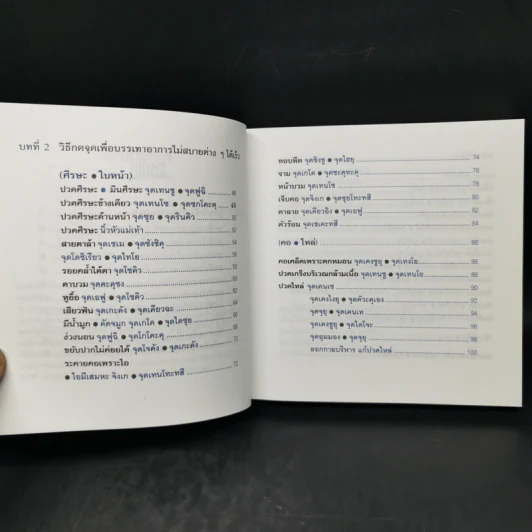 บทที่ 2 วิธีกดจุดเพื่อบรรเทาอาการไม่สบายต่าง ๆ ได้เร็ว
(ศีรษะ ● ใบหน้า)
ปวดศีรษะ ● มึนศีรษะ จุดเทนชู ● จุดฟูฉิ 46
ปวดศีรษะข้างเดียว จุดเทนโช ● จุดซกโคะคุ 48
ปวดศีรษะด้านหน้า จุดชุย ● จุดรินคิว
ปวดศีรษะ นิ้วหัวแม่เท้า 52
สายตาล้า จุดเซเม ● จุดซังชิคุ
จุดโคชิเรียว ● จุดไทโย
รอยคล้ำใต้ตา จุดโชคิว
ตาบวม จุดคะคุซง
หูอื้อ จุดเอฟู ● จุดโชคิว
เสียวฟัน จุดเกะคัง ● จุดเคียวฉะ
มีน้ำมูก ● คัดจมูก จุดเกโค ● จุดไดซุย
ง่วงนอน จุดฟูฉิ ● จุดโกโคะคุ
ขยับปากไม่ค่อยได้ จุดโจคัง ● จุดเกะคัง
ระคายคอเพราะไอ 72
● ไอมีเสมหะ จิงเก ● จุดเทนโทะทสึ
หอบหืด จุดชิงชู ● จุดไฮยุ 74
จาม จุดเกโค ● จุดชะคุทะคุ 76
หน้าบวม จุดเทนโช 78
เจ็บคอ จุดจิงเก ● จุดชุยโทะทสึ 80
ตาลาย จุดเคียวอิง ● จุดเอฟู 82
ตัวร้อน จุดเซเคะทสึ 84
(คอ ● ไหล่) 86
คอเคล็ดเพราะตกหมอน จุดเคงซูยุ ● จุดเทงโย 88
ปวดเกร็งบริเวณกล้ามเนื้อ จุดเทนชู ● จุดเทนโย 90
ปวดไหล่ จุดเคนเซ
จุดเคงไงยุ ● จุดคัวะคุเอง 92
จุดจุยุ ● จุดเคนเท 94
จุดเคงซูยุ ● จุดไดโจะ 96
จุดยุมมอง ● จุดจุยุ 98
ออกกายบริหาร แก้ปวดไหล่ 100